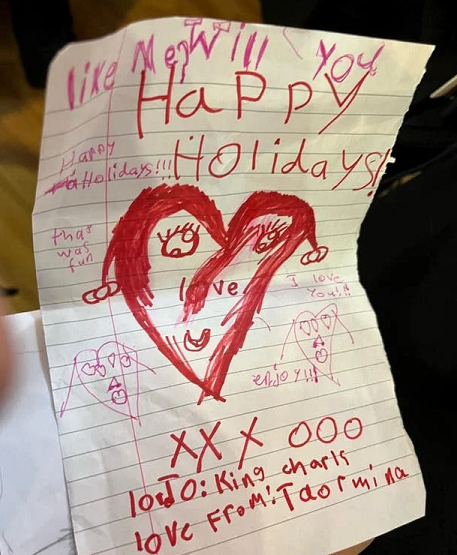 like Me? Will you
Happy
Holidays!
Happy
Holidays!!!
that
was
fun
love
I love
You!!!
XXX OOO
To: King charls
love From: Taormina